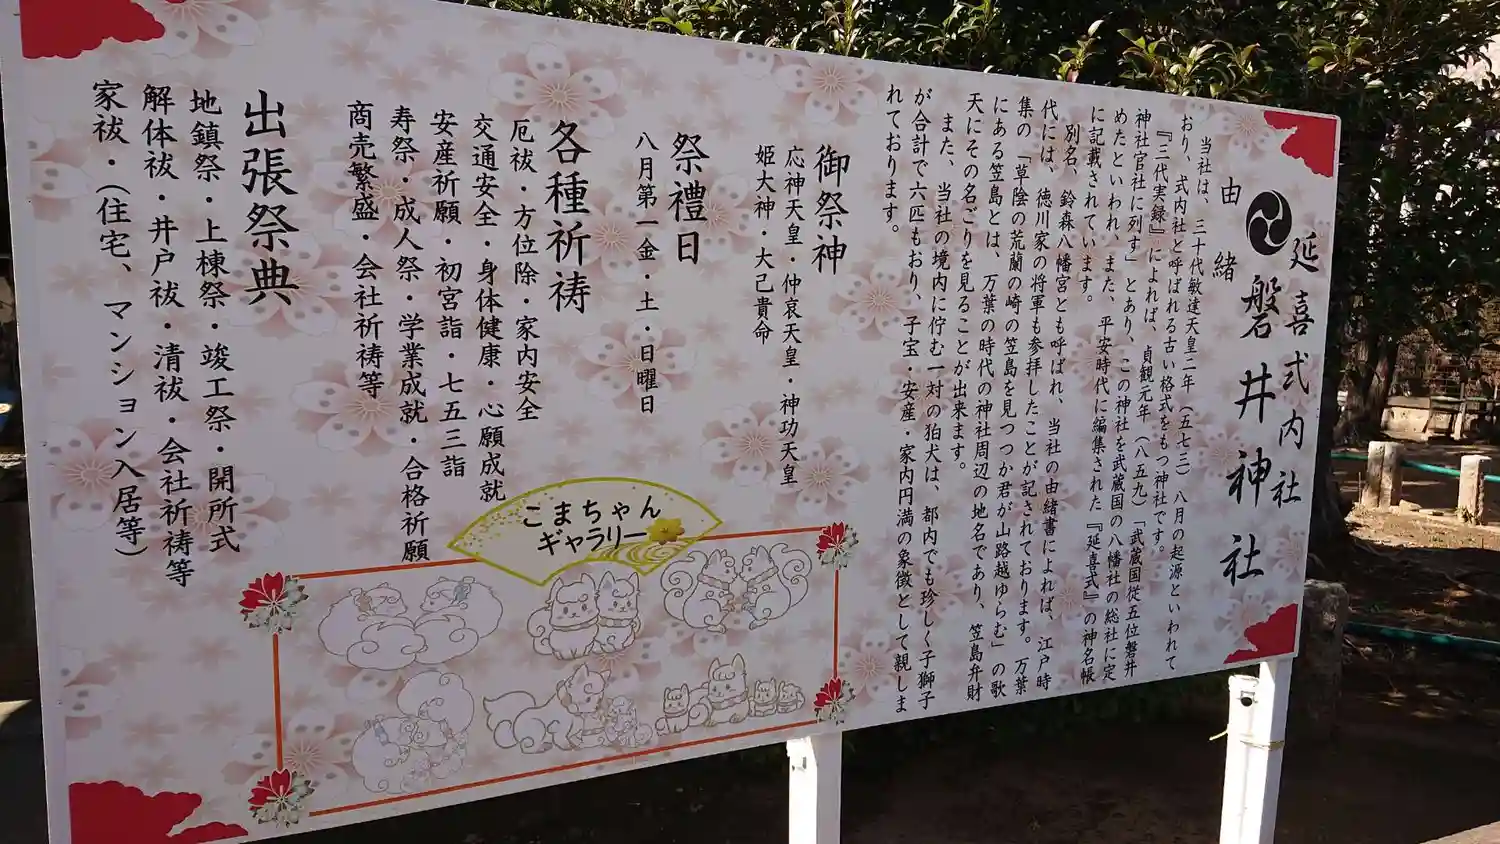 延喜式内社
磐井神社
由緒
当社は、三十代敏達天皇二年（五七三）八月の起源といわれて
おり、式内社と呼ばれる古い格式をもつ神社です。
『三代実録』によれば、貞観元年（八五九）「武蔵国従五位磐井
神社官社に列す」とあり、この神社を武蔵国の八幡社の総社に定
めたといわれ、また、平安時代に編集された『延喜式』の神名帳
に記載されています。
別名、鈴森八幡宮とも呼ばれ、当社の由緒書によれば、江戸時
代には、徳川家の将軍も参拝したことが記されております。万葉
集の「草陰の荒藺の崎の笠島を見つつか君が山路越ゆらむ」の歌
にある笠島とは、万葉の時代の神社周辺の地名であり、笠島弁財
天にその名ごりを見ることが出来ます。
また、当社の境内に佇む一対の狛犬は、都内でも珍しく子獅子
が合計で六匹もおり、子宝・安産・家内円満の象徴として親しま
れております。
御祭神
応神天皇・仲哀天皇・神功天皇
姫大神・大己貴命
祭禮日
八月第一金・土・日曜日
各種祈祷
厄祓・方位除・家内安全
交通安全・身体健康・心願成就
安産祈願・初宮詣・七五三詣
寿祭・成人祭・学業成就・合格祈願
商売繁盛・会社祈祷等
出張祭典
地鎮祭・上棟祭・竣工祭・開所式
解体祓・井戸祓・清祓・会社祈祷等
家祓・（住宅、マンション入居等）
こまちゃん
ギャラリー